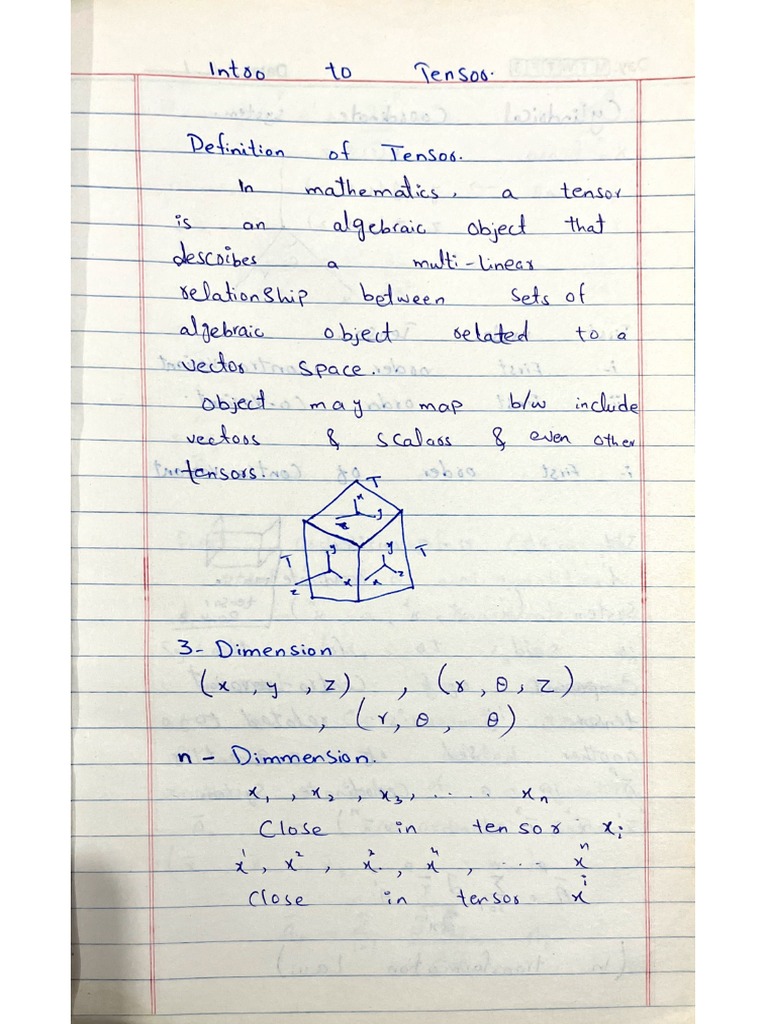 Intro to Tensor.
Definition of Tensor.
In mathematics, a tensor
is an algebraic object that
describes a multi-linear
relationship between sets of
algebraic object related to a
vector space.
object may map b/w include
vectors & scalars & even other
tensors.
T
x
z y
T y y T
z x x z
3- Dimension
(x, y, z) , (r, θ, z)
, (r, θ, θ)
n - Dimmension.
x₁, x₂, x₃, .... xₙ
Close in tensor xᵢ
x¹, x², x², x⁴, .... xⁿ
Close in tensor xⁱ